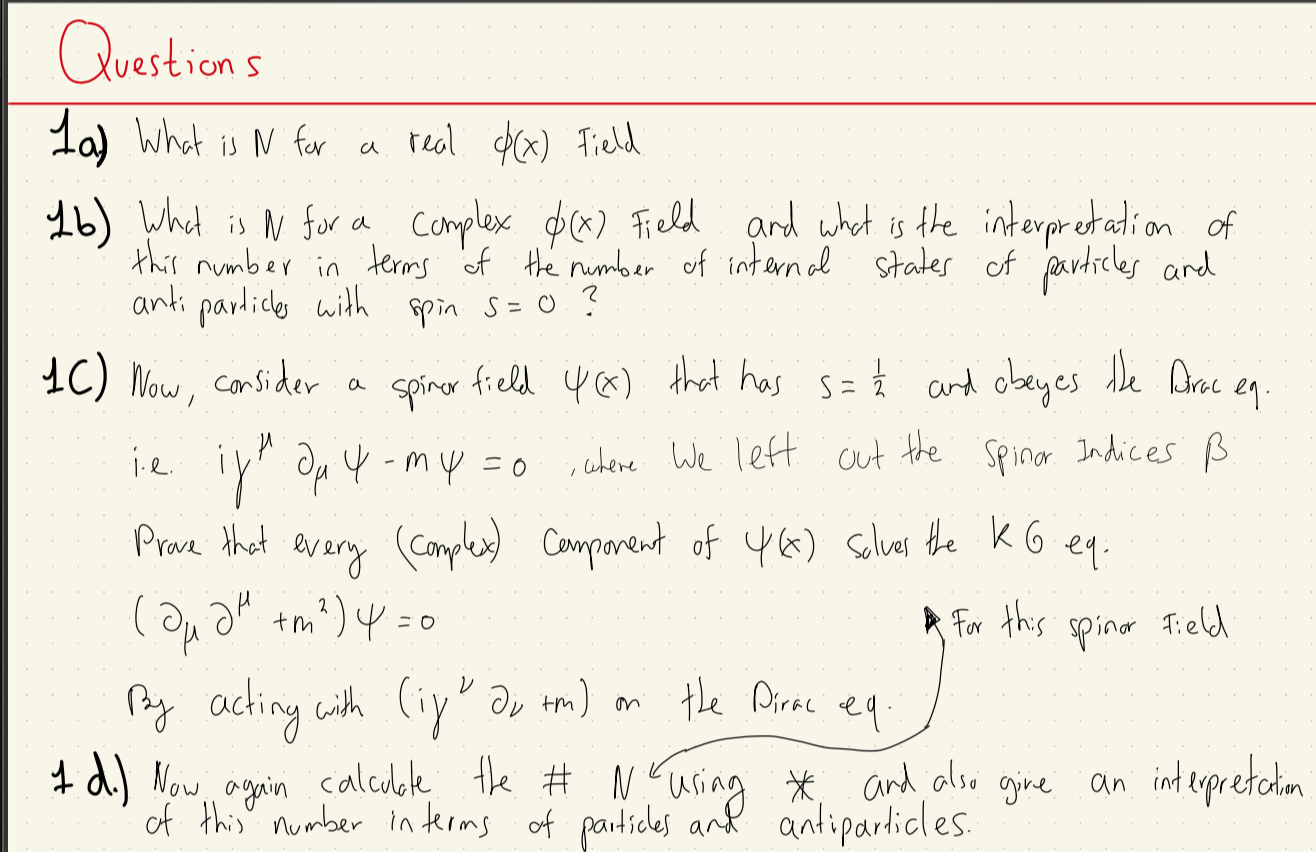 Questions
1a) What is N for a real ϕ(x) Field
1b) What is N for a complex ϕ(x) Field and what is the interpretation of
this number in terms of the number of internal states of particles and
anti particles with spin s = 0 ?
1C) Now, consider a spinor field ψ(x) that has s = 1/2 and obeyes the Dirac eq.
i.e. iγ^μ ∂_μ ψ - m ψ = 0 , where We left out the spinor Indices β
Prove that every (complex) Component of ψ(x) Solves the K G eq.
(∂_μ ∂^μ + m²) ψ = 0
For this spinor Field
By acting with (iγ^ν ∂_ν + m) on the Dirac eq.
1 d.) Now again calculate the # N using * and also give an interpretation
of this number in terms of particles and antiparticles.